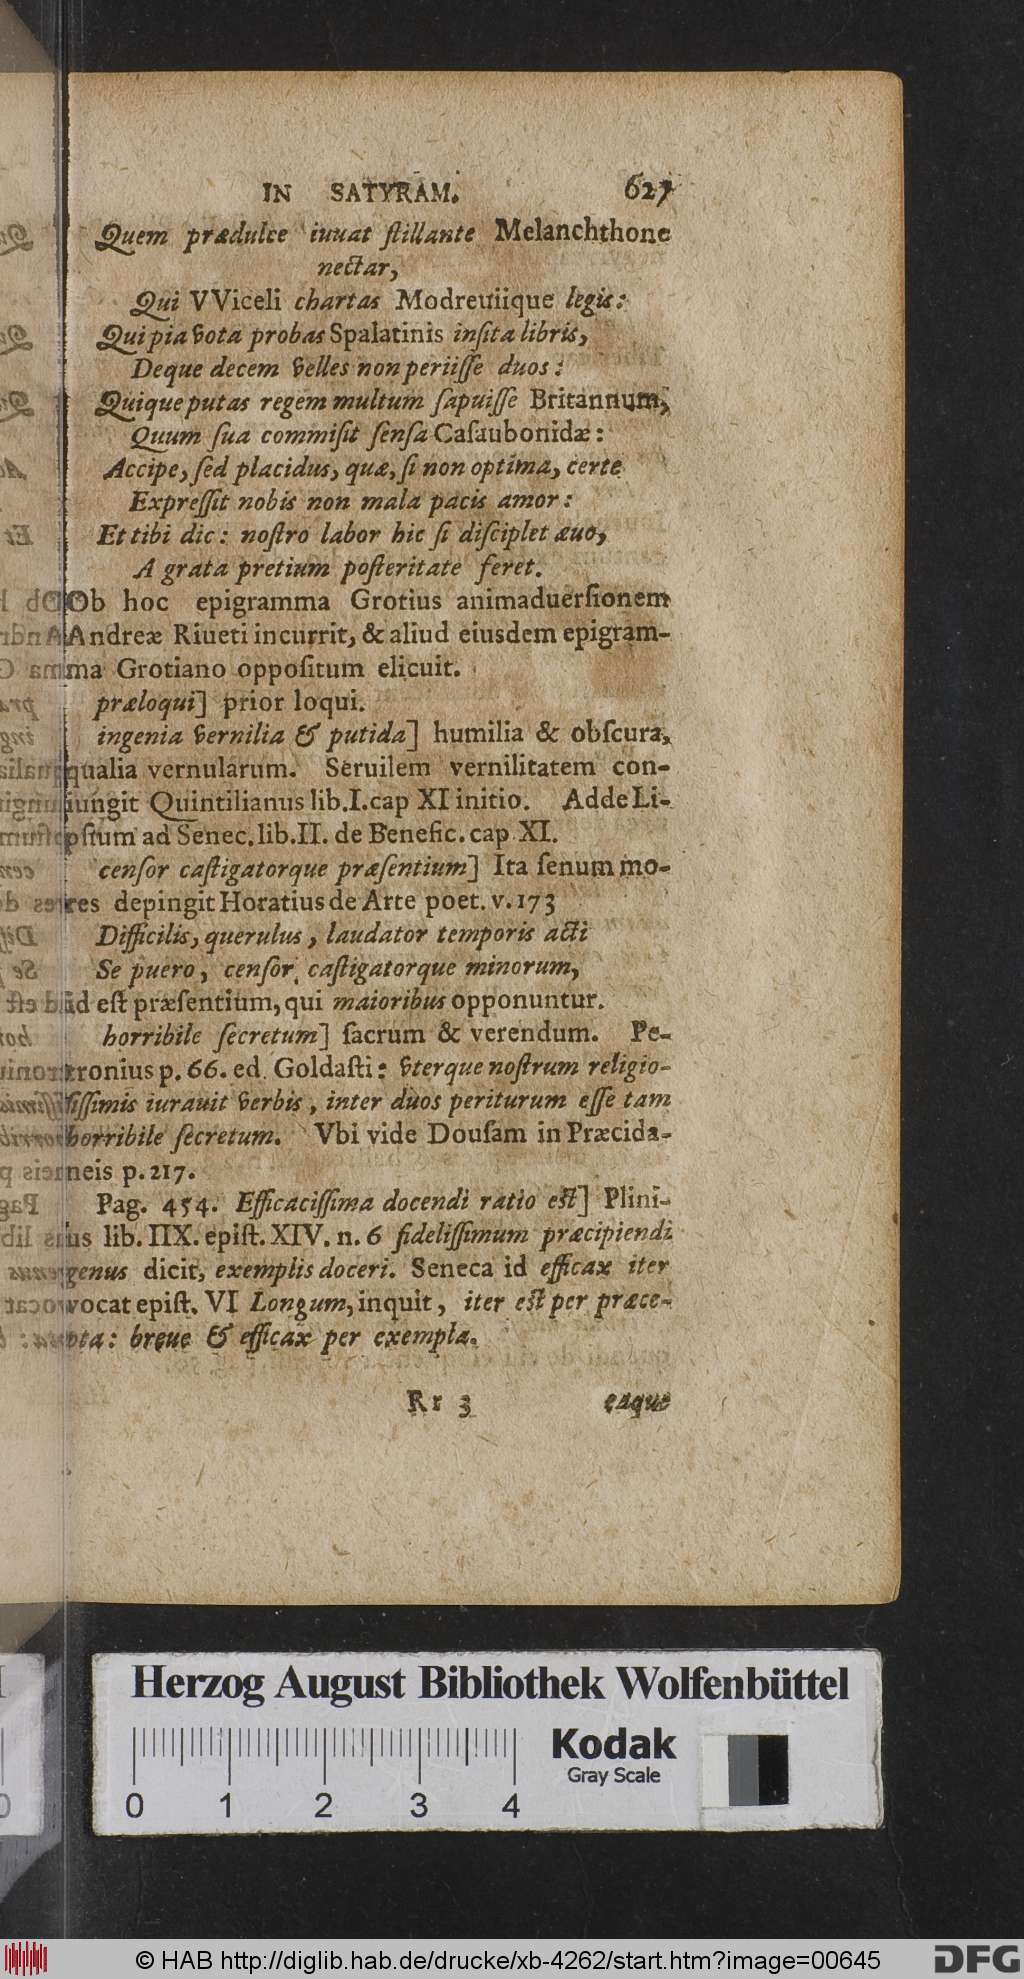 IN SATYRAM. 627
Quem prædulce iuuat ſtillante Melanchthone
nectar,
Qui VViceli chartas Modreuiique legis:
Qui pia vota probas Spalatinis inſita libris,
Deque decem velles non periiſſe duos:
Quique putas regem multum ſapuiſſe Britannum,
Quum ſua commiſit ſenſa Caſaubonidæ:
Accipe, ſed placidus, quæ, ſi non optima, certe
Expreſſit nobis non mala pacis amor:
Et tibi dic: noſtro labor hic ſi diſciplet æuo,
A grata pretium poſteritate feret.
Ob hoc epigramma Grotius animaduerſionem
Andreæ Riueti incurrit, & aliud eiusdem epigram-
ma Grotiano oppoſitum elicuit.
præloqui] prior loqui.
ingenia vernilia & putida] humilia & obſcura,
qualia vernularum. Seruilem vernilitatem con-
iungit Quintilianus lib.I.cap XI initio. Adde Li-
pſium ad Senec. lib.II. de Benefic. cap XI.
cenſor caſtigatorque præſentium] Ita ſenum mo-
res depingit Horatius de Arte poet. v. 173
Difficilis, querulus, laudator temporis acti
Se puero, cenſor, caſtigatorque minorum,
id eſt præſentium, qui maioribus opponuntur.
horribile ſecretum] ſacrum & verendum. Pe-
tronius p. 66. ed. Goldaſti: vterque noſtrum religio-
ſiſſimis iurauit verbis, inter duos periturum eſſe tam
horribile ſecretum. Vbi vide Douſam in Præcida-
neis p. 217.
Pag. 454. Efficaciſſima docendi ratio eſt] Plini-
us lib. IIX. epiſt. XIV. n. 6 fideliſſimum præcipiendi
genus dicit, exemplis doceri. Seneca id efficax iter
vocat epiſt. VI Longum, inquit, iter eſt per præce-
pta: breue & efficax per exempla.
Rr 3 eaque
Herzog August Bibliothek Wolfenbüttel
Kodak
Gray Scale
0 1 2 3 4
© HAB http://diglib.hab.de/drucke/xb-4262/start.htm?image=00645
DFG